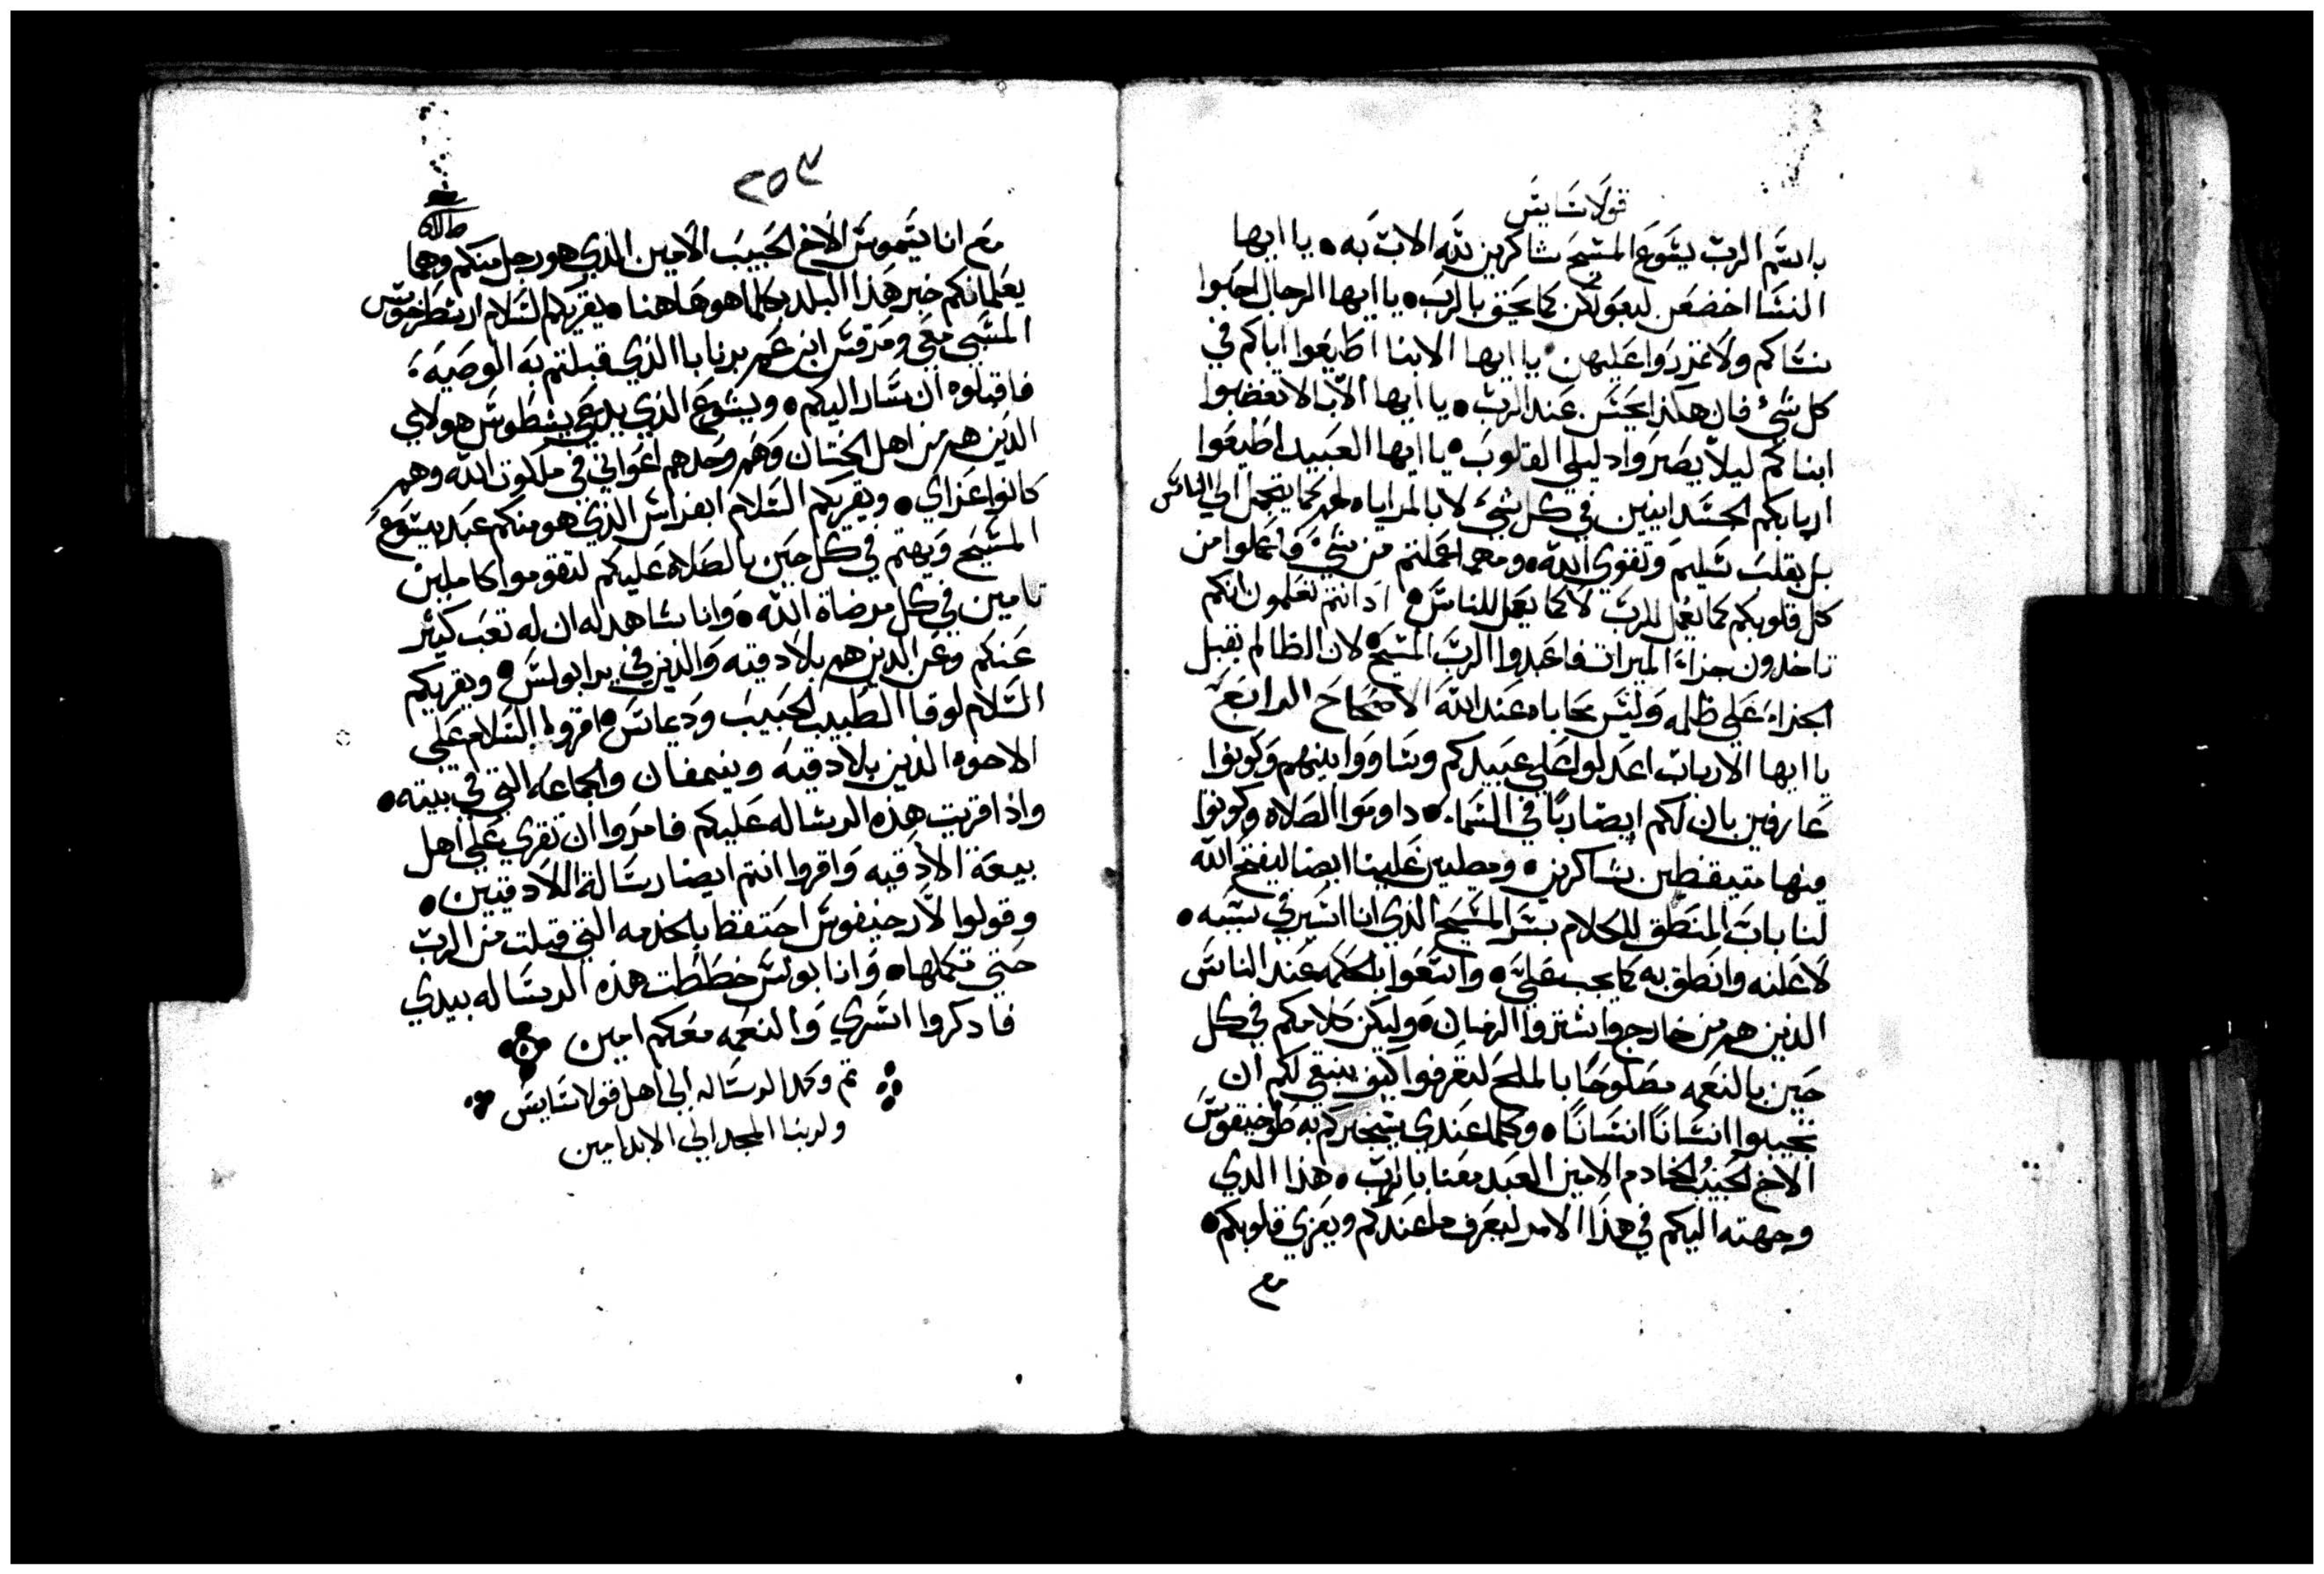 قولاسايس
باسم الرب يسوع المسيح شاكرين لله الاب به • يا ايها
النسا اخضعن لبعولكن كما يحق بالرب • يا ايها الرجال احبوا
نساكم ولا تمردوا عليهن • يا ايها الابنا اطيعوا اباكم في
كل شي فان هكذا يحسن عند الرب • يا ايها الابا لا تغضبوا
ابناكم ليلا يصيروا دليلي القلوب • يا ايها العبيد اطيعوا
اربابكم الجسدانيين في كل شي لا بالمراياه لهم كما يتجمل الى الناس
بل بقلب سليم وتقوي الله • ومهما عملتم من شي واعملوا من
كل قلوبكم كما يعمل للرب لا كما يعمل للناس • اد انتم تعلمون انكم
تاخدون جزاء الميرات فاعبدوا الرب المسيح • لان الظالم يقبل
الجزاء علي ظلمه وليس محاباه عند الله الاصحاح الرابع
يا ايها الارباب اعدلوا علي عبيدكم وساووا بينهم وكونوا
عارفين بان لكم ايضا ربا في السماء • داوموا الصلاه وكونوا
فيها متيقظين شاكرين • ومصليين علينا ايضا ليفتح الله
لنا باب المنطق للكلام بسر المسيح الذي انا اسير في سببه •
لاعلنه وانطق به كما يجب علي • واسعوا بالحكمه عند الناس
الذين هم من خارج واشتروا الزمان • وليكن كلامكم في كل
حين بالنعمه مصلوحا بالملح لتعرفوا كيف ينبغي لكم ان
تجيبوا انسانا انسانا • وكلما عندي سيخبركم به طوخيقوس
الاخ الحبيب الخادم الامين العبد معنا بالرب • هذا الدي
وجهته اليكم في هذا الامر ليعرف ما عندكم ويعزي قلوبكم •
مع
٢٥٣
مع اناسيموس الاخ الحبيب الامين الذي هو رجل منكم وهما
يعلمانكم خبر هذا البلد وكلما هو هاهنا • يقريكم السلام ارسطرخوس
المسبي معي ومرقس ابن عم برنابا الذي قبلتم به الوصيه •
فاقبلوه ان سار اليكم • ويسوع الذي يدعي يسطوس هولاي
الذين هم من اهل الختان وهم وحدهم اعواني في ملكوت الله وهم
كانوا عزاي • ويقريكم السلام ابفراس الذي هو منكم عبد يسوع
المسيح ويهتم في كل حين بالصلاه عليكم لتقوموا كاملين
تامين في كل مرضاة الله • وانا شاهد له ان له تعب كثير
عنكم وعن الدين هم بلادقيه والذين في يرابولس • ويقريكم
السلام لوقا الطبيب الحبيب وديماس • اقروا السلام علي
الاخوه الذين بلادقيه ونيمفان والجماعه التي في بيته •
واذا قريت هذه الرساله عليكم فامروا ان تقري علي اهل
بيعة الادقيه واقروا انتم ايضا رسالة اللادقيين •
وقولوا لارخيفوس احتفظ بالخدمه التي قبلت من الرب
حتي تكملها • وانا بولس خططت هذه الرساله بيدي
فادكروا اسري والنعمه معكم امين
تم وكمل الرساله الي اهل قولاسايس
ولربنا المجد الي الابد امين